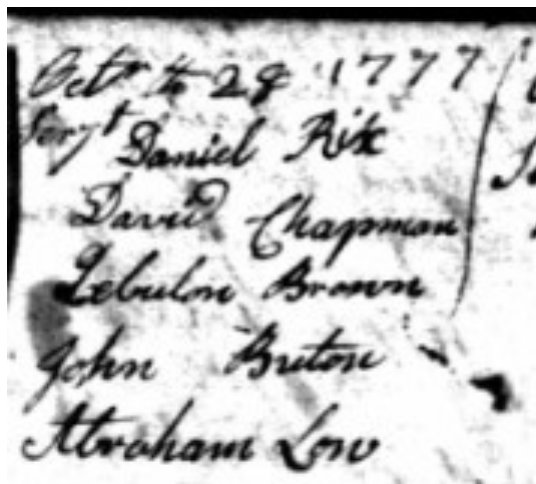 Octr th 28 1777
Sergt Daniel Rix
David Chapman
Zebulon Brown
John Buton
Abraham Low